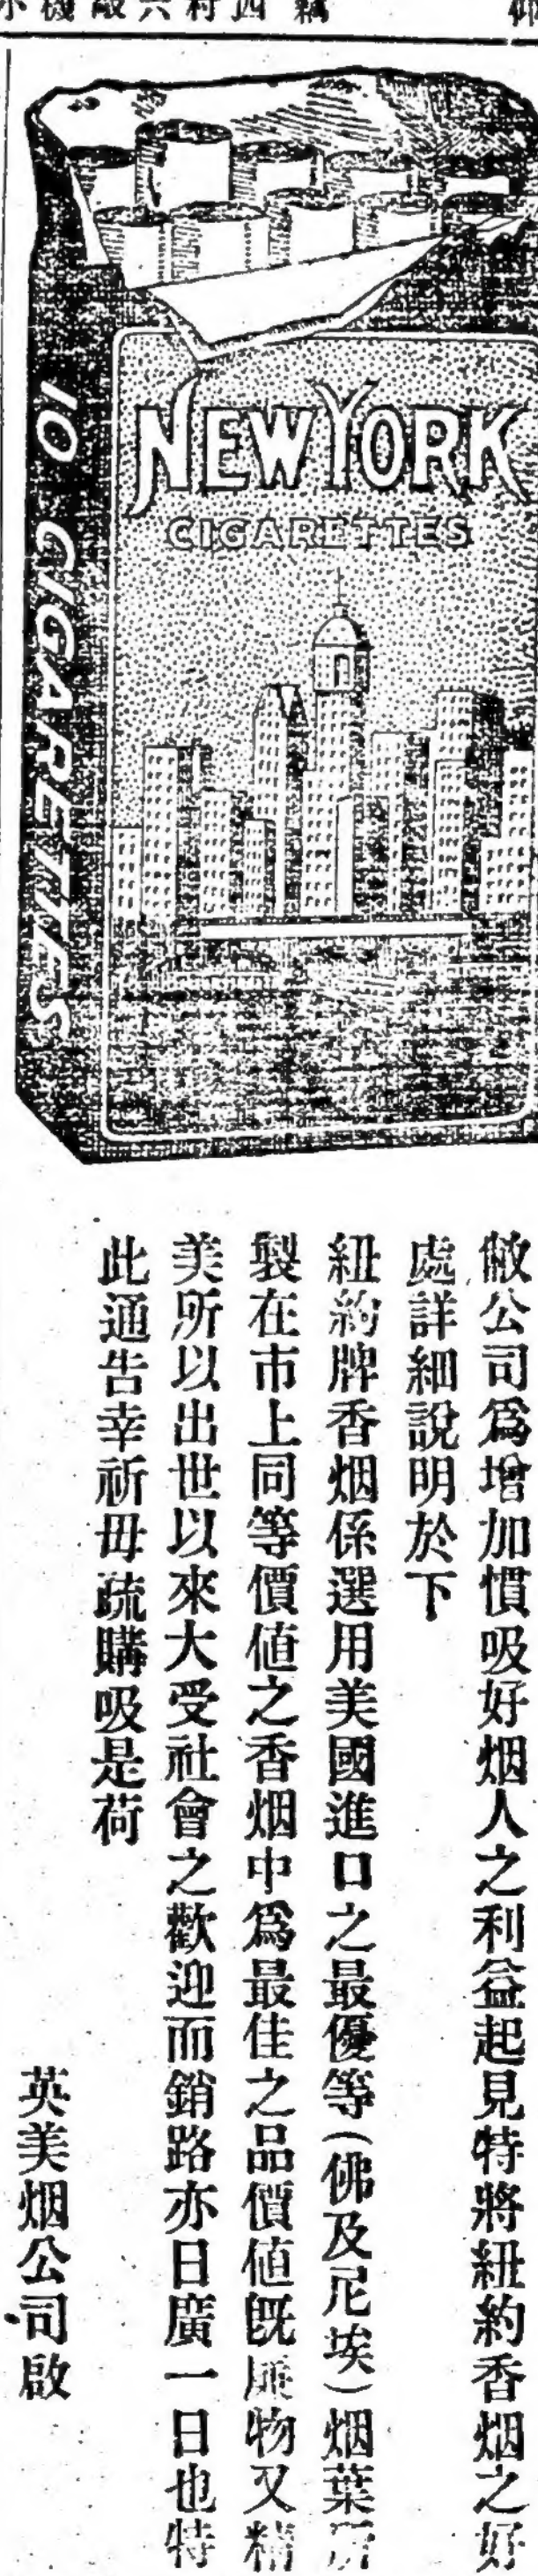 NEW YORK
CIGARETTES
10 CIGARETTES
敝公司爲增加慣吸好烟人之利益起見特將紐約香烟之好
處詳細說明於下
紐約牌香烟係選用美國進口之最優等(佛及尼埃)烟葉所
製在市上同等價値之香烟中爲最佳之品價値旣廉物又精
美所以出世以來大受社會之歡迎而銷路亦日廣一日也特
此通告幸祈毋疏購吸是荷
英美烟公司啟